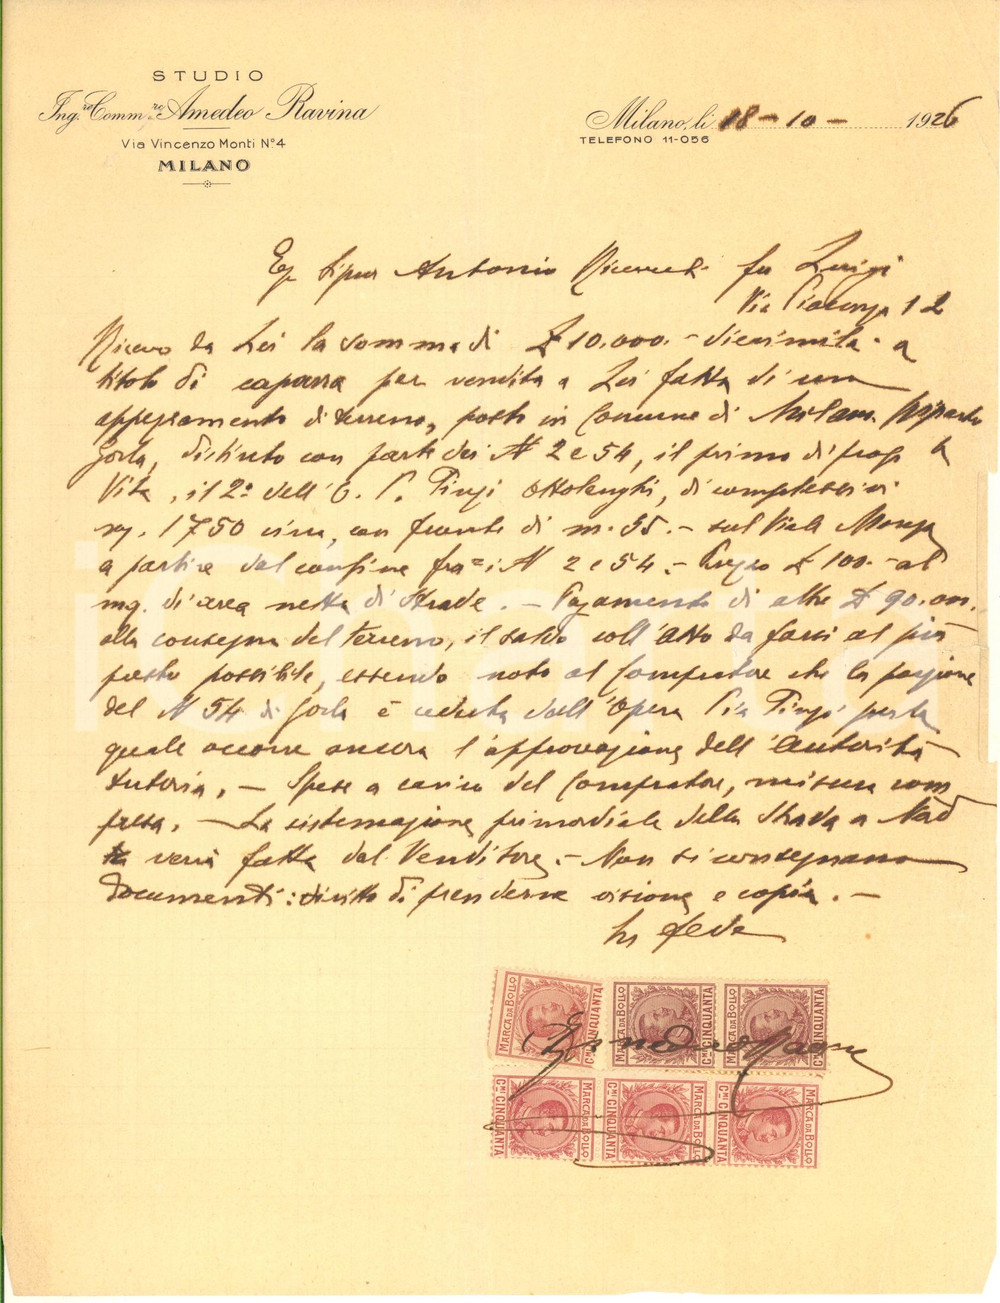 STUDIO
Ing.re Comm.re Amedeo Ravina
Via Vincenzo Monti N.º 4
MILANO
Milano, li 18-10- 1926
TELEFONO 11-056
Eg Signor Antonio fu Luigi
Via Piacenza 12
Ricevo da Lei la somma di £ 10.000.- diecimila - a
titolo di caparra per vendita a Lei fatta di un
appezzamento di terreno, posto in Comune di Milano. Riparto
Gorla, distinto con parte dei N 2 e 54, il primo di prop
Vita, il 2º dell'O. P. Pizzi Ottolenghi, di complessivi
mq. 1750 circa, con fronte di m. 35.- sul Viale Monza
a partire dal confine fra i N 2 e 54.- Prezzo £ 100.- al
mq. di area netta di strade. - Pagamento di altre £ 90.000.
alla consegna del terreno, il saldo coll'atto da farsi al più
presto possibile, essendo noto al Compratore che la porzione
del N 54 di Gorla è ceduta dall'Opera Pia Pizzi per la
quale occorre ancora l'approvazione dell'Autorità
tutoria. - Spese a carico del Compratore, misura com
presa. - La sistemazione primordiale della strada a Nord
verrà fatta dal Venditore. - Non si consegnano
documenti: diritto di prenderne visione e copia. -
In fede
MARCA DA BOLLO
C.MI CINQUANTA
MARCA DA BOLLO
C.MI CINQUANTA
MARCA DA BOLLO
C.MI CINQUANTA
C.MI CINQUANTA
MARCA DA BOLLO
C.MI CINQUANTA
MARCA DA BOLLO
C.MI CINQUANTA
MARCA DA BOLLO